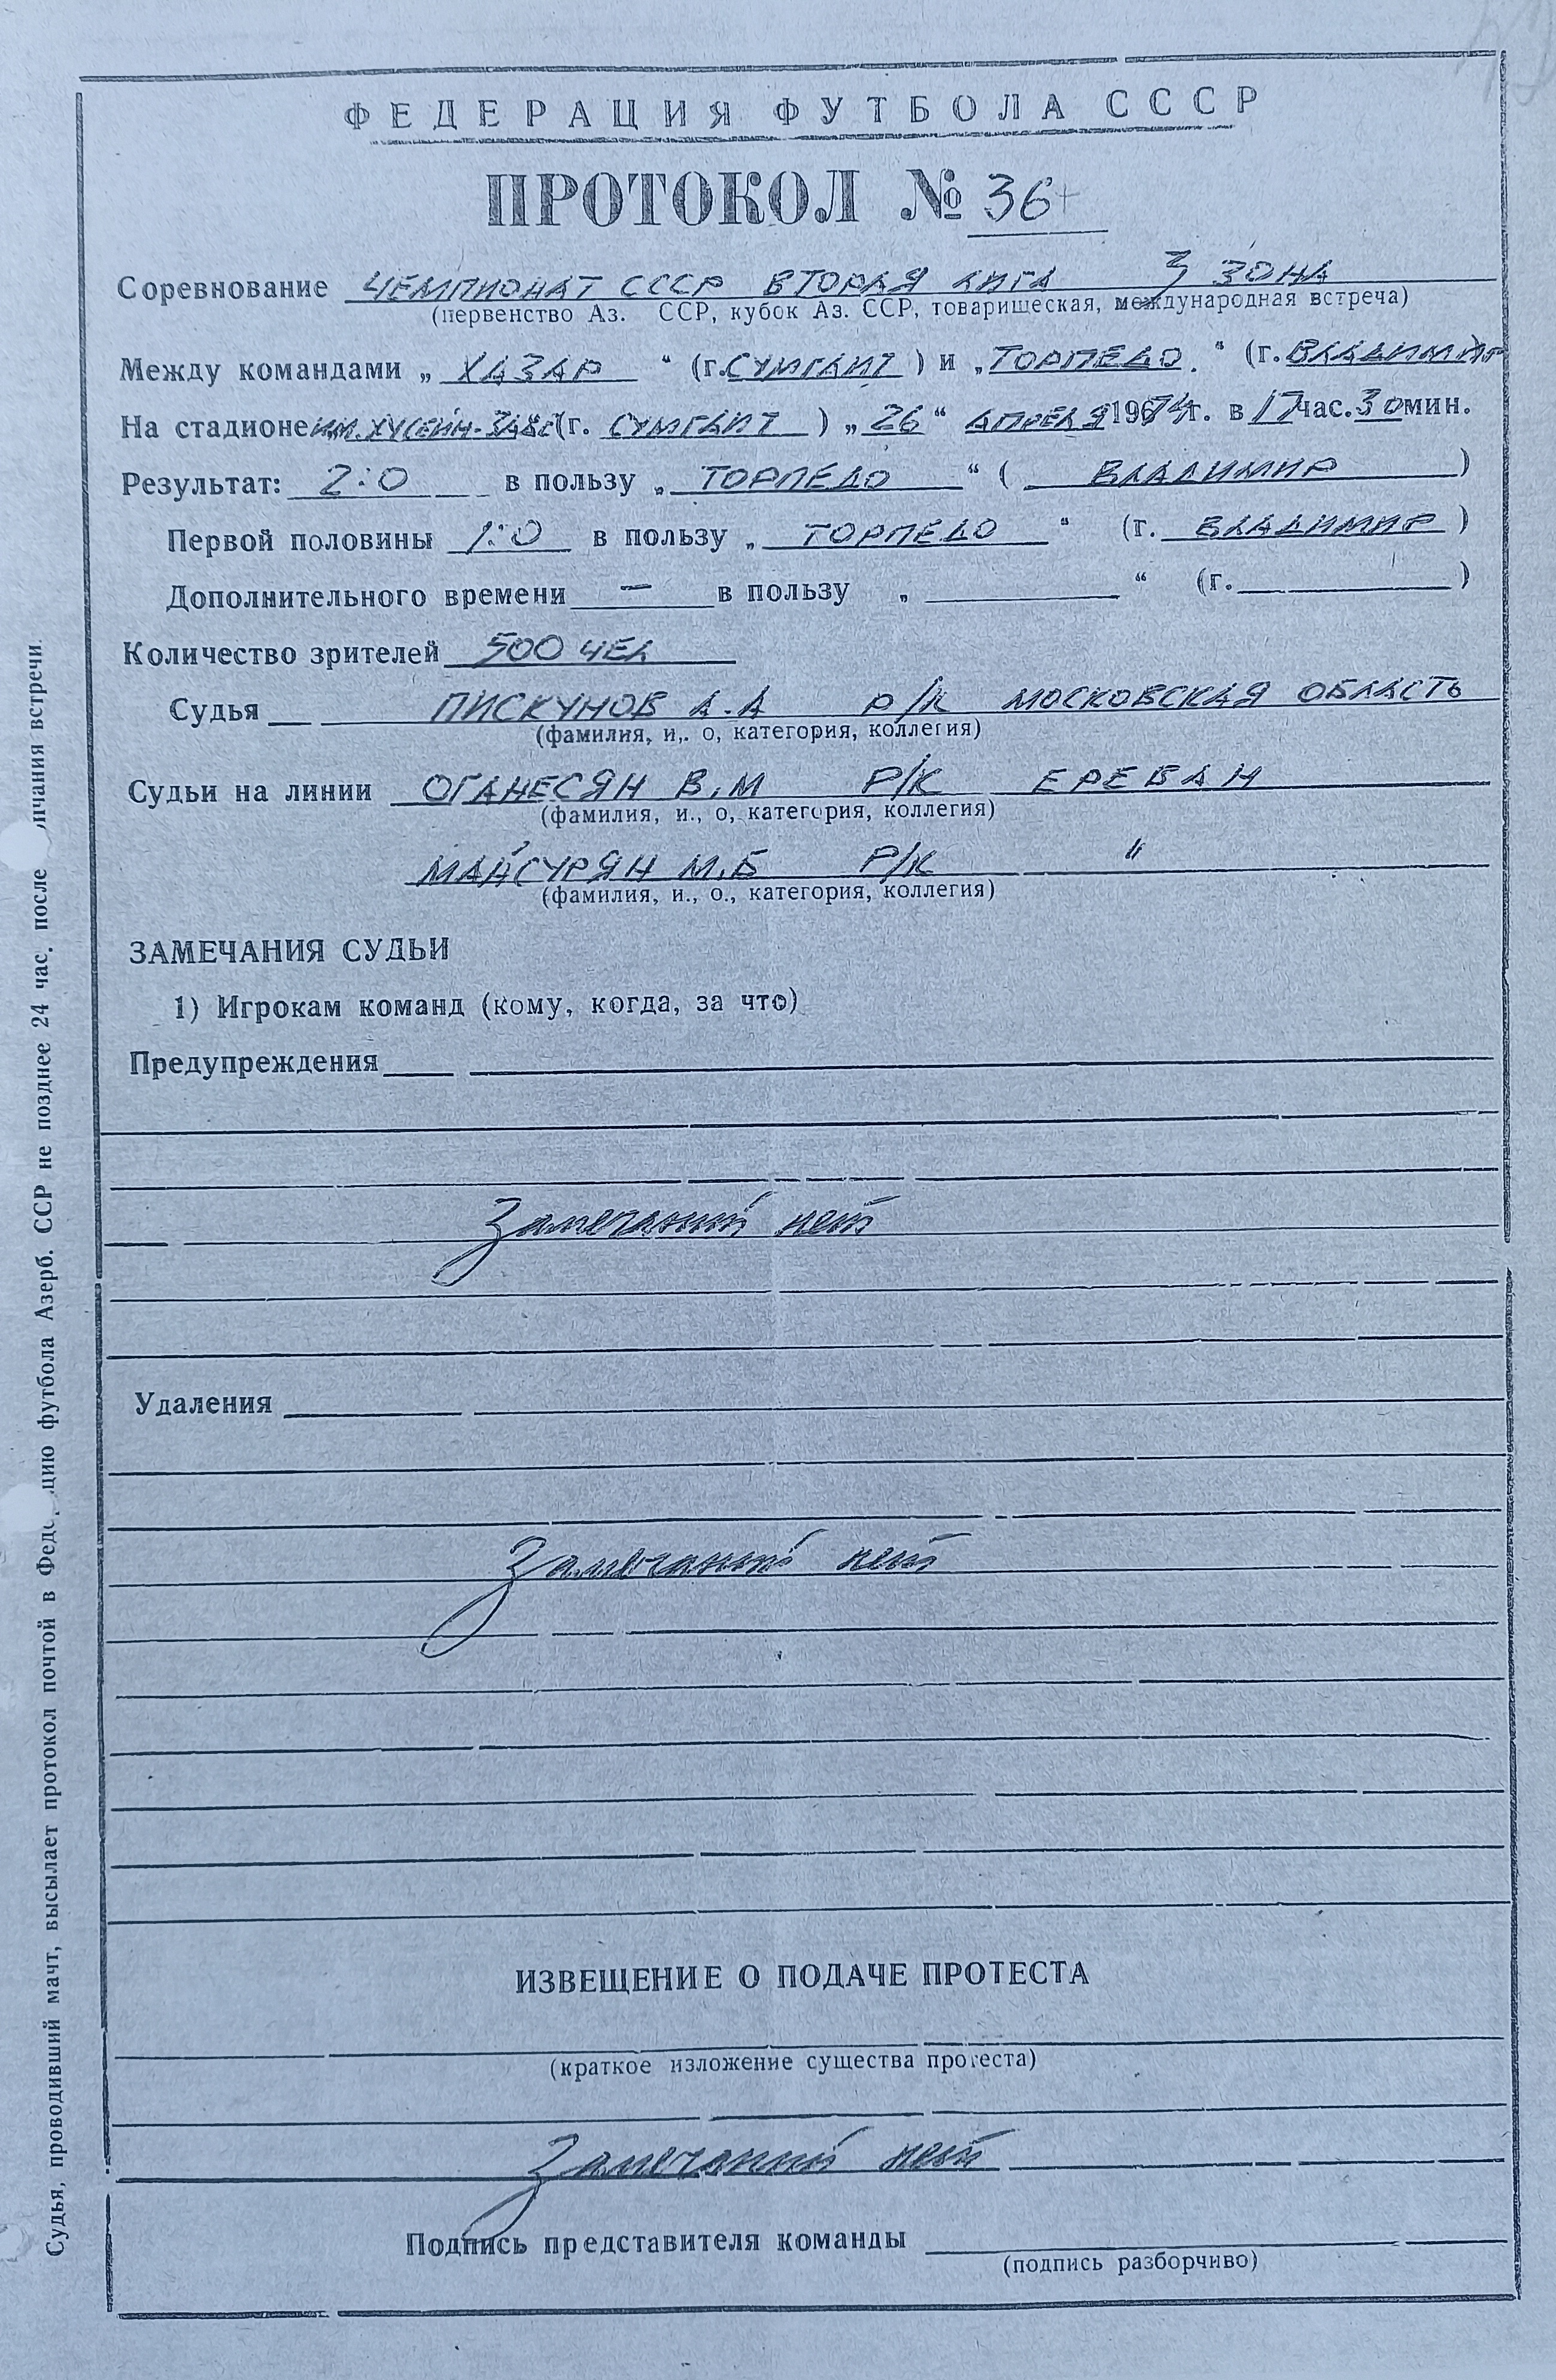 ФЕДЕРАЦИЯ ФУТБОЛА СССР
ПРОТОКОЛ № 36
Соревнование ЧЕМПИОНАТ СССР ВТОРАЯ ЛИГА 3 ЗОНА
(первенство Аз. ССР, кубок Аз. ССР, товарищеская, международная встреча)
Между командами „ ХАЗАР “ (г. СУМГАИТ ) и „ ТОРПЕДО “ (г. ВЛАДИМИР
На стадионе ИМ. ХУСЕЙН- (г. СУМГАИТ ) „ 26 “ АПРЕЛЯ 1974г. в 17 час. 30 мин.
Результат: 2:0 в пользу „ ТОРПЕДО “ ( ВЛАДИМИР )
Первой половины 1:0 в пользу „ ТОРПЕДО “ (г. ВЛАДИМИР )
Дополнительного времени — в пользу „ “ (г. )
Количество зрителей 500 ЧЕЛ
Судья ПИСКУНОВ А.А Р/К МОСКОВСКАЯ ОБЛАСТЬ
(фамилия, и,. о, категория, коллегия)
Судьи на линии ОГАНЕСЯН В.М Р/К ЕРЕВАН
(фамилия, и., о, категория, коллегия)
МАЙСУРЯН М.Б Р/К "
(фамилия, и., о., категория, коллегия)
ЗАМЕЧАНИЯ СУДЬИ
1) Игрокам команд (кому, когда, за что)
Предупреждения
Замечаний нет
Удаления
Замечаний нет
ИЗВЕЩЕНИЕ О ПОДАЧЕ ПРОТЕСТА
(краткое изложение существа протеста)
Замечаний нет
Подпись представителя команды
(подпись разборчиво)
Судья, проводивший матч, высылает протокол почтой в Федерацию футбола Азерб. ССР не позднее 24 час. после окончания встречи.